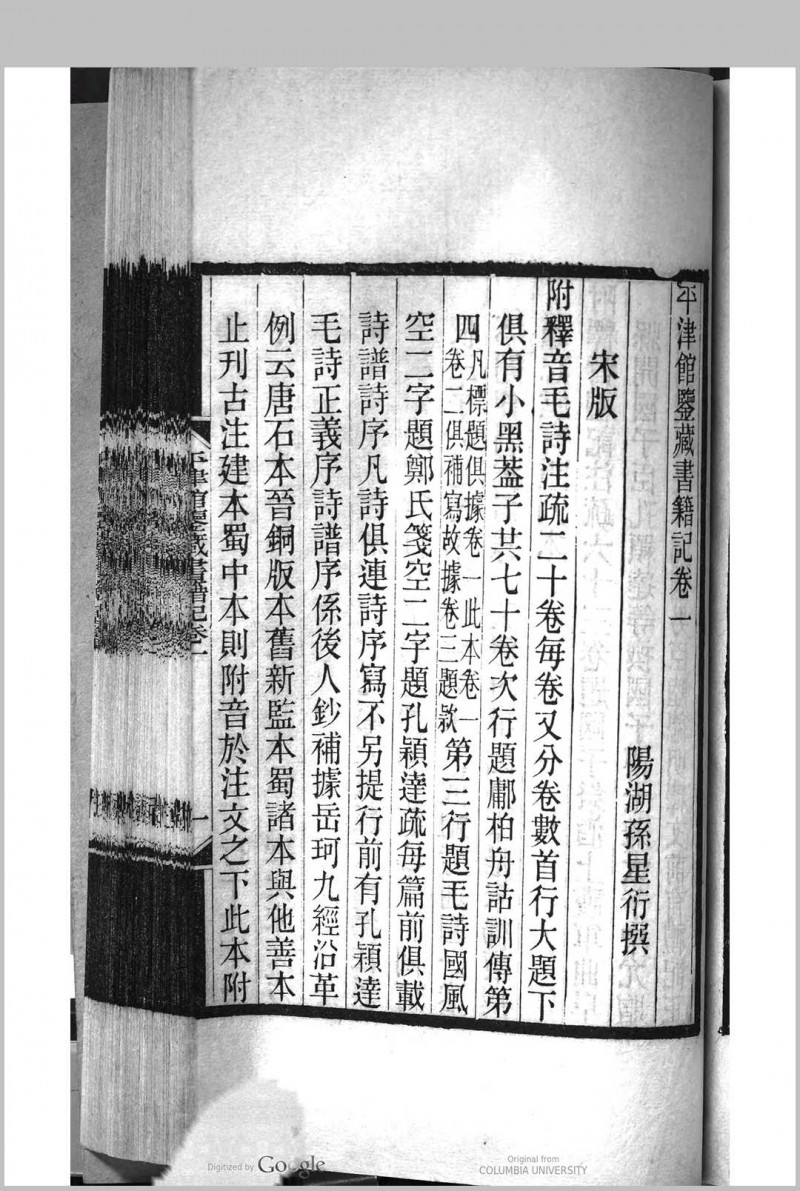 平津館鑒藏書籍記卷一
陽湖孫星衍撰
宋版
附釋音毛詩注疏二十卷每卷又分卷數首行大題下
俱有小黑蓋子共七十卷次行題鄘柏舟詁訓傳第
四凡標題俱據卷一此本卷一
卷二俱補寫故據卷三題款第三行題毛詩國風
空二字題鄭氏箋空二字題孔穎達疏每篇前俱載
詩譜詩序凡詩俱連詩序寫不另提行前有孔穎達
毛詩正義序詩譜序係後人鈔補據岳珂九經沿革
例云唐石本晉銅版本舊新監本蜀諸本與他善本
止刋古注建本蜀中本則附音於注文之下此本附
平津館鑒藏書籍記卷一
一
Digitized by Google
Original from
COLUMBIA UNIVERSITY